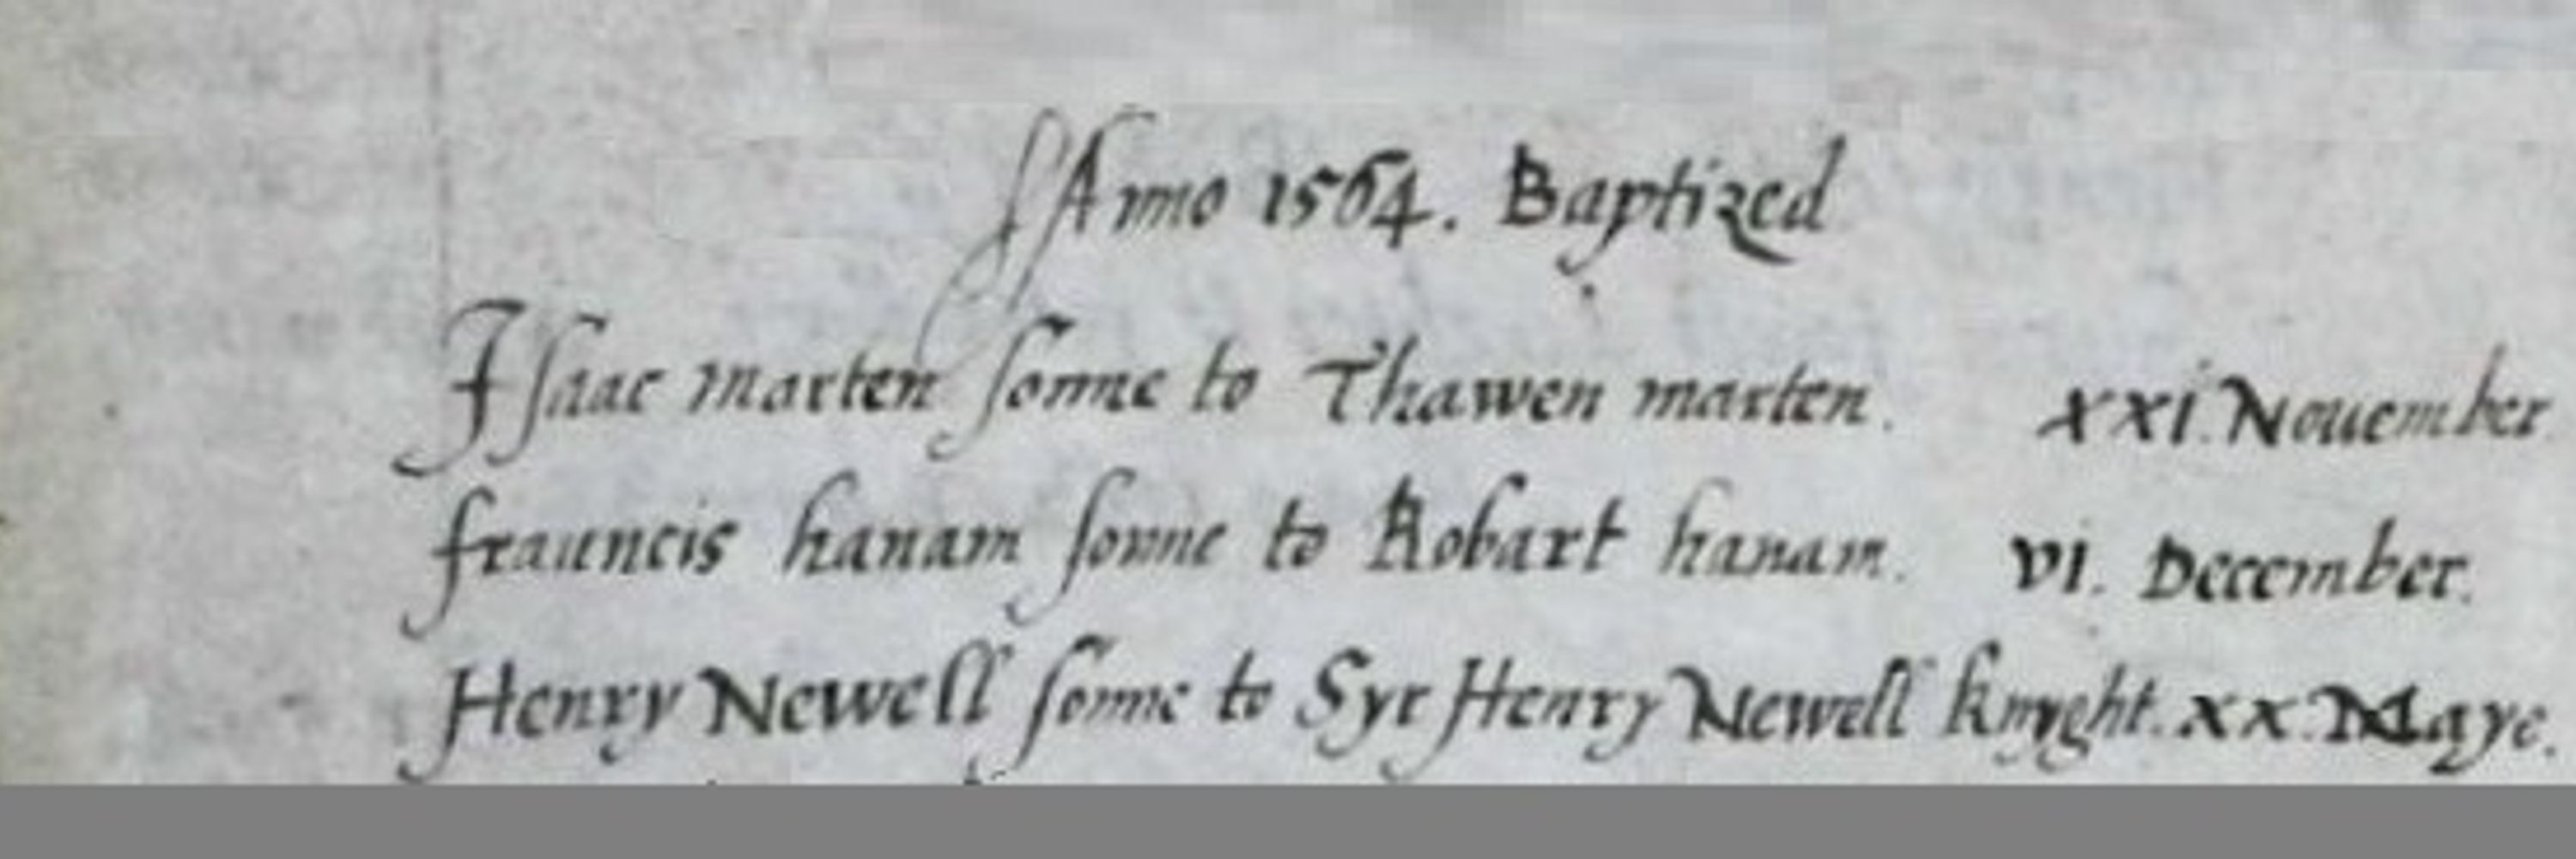 Anno 1564. Baptized
Isaac marten sonne to Thawen marten. xxi. Nouember
frauncis hanam sonne to Robart hanam. vi. December.
Henry Newell sonne to Syr Henry Newell knyght. xx. Maye.